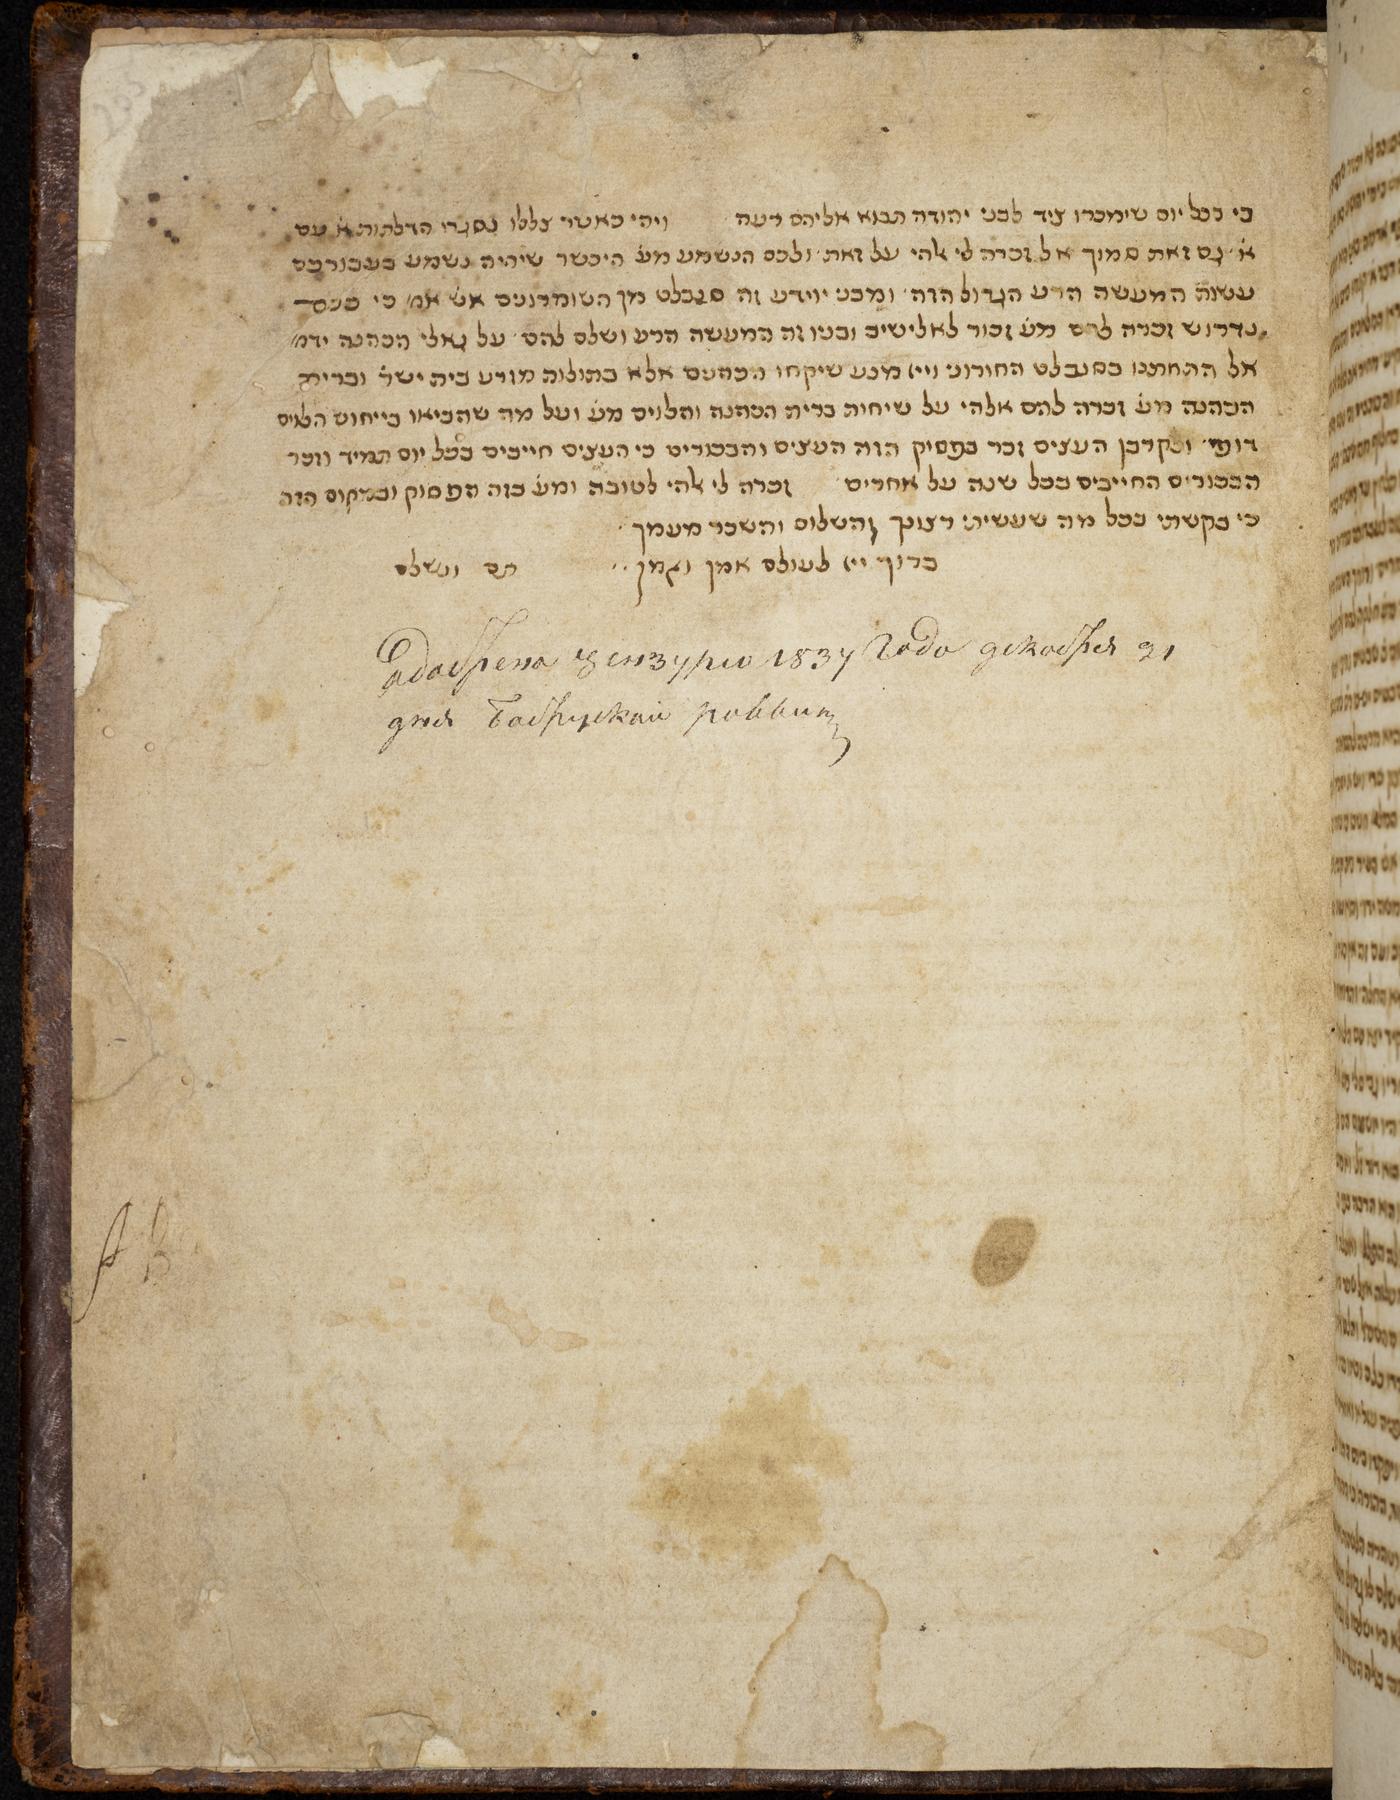 כי בכל יום שימכרו ציד לבני יהודה תבוא אליהם רעה ויהי כאשר צללו נסגרי הדלתות א׳ עם
א׳ גם זאת סמוך אל זכרה לי אלהי על זאת ולכם הנשמע מע׳ היכשר שיהיה נשמע בעבורכם
עשות המעשה הרע הגדול הזה ומבני יוידע זה סנבלט מן השומרונים אש׳ אמ׳ כי
נדרוש זכרה להם מע׳ זכור לאלישיב ובניו זה המעשה הרע ושלם להם על גאלי הכהנה ידמ׳
אל התחתנו בסנבלט החורוני וייי מנע שיקחו הכהנים אלא בתולות מזרע בית ישר׳ וברית
הכהנה מע׳ זכרה להם אלהי על שיחות ברית הכהנה והלוים מע׳ ועל מה שהביאו בייחוש הלוים
וקרבן העצים זכר בפסוק הזה העצים והבכורים כי העצים חייבים בכל יום תמיד וזכר
הבכורים החייבים בכל שנה על אחרים זכרה לי אלהי לטובה ומע׳ בזה הפסוק ובמקום הזה
כי בקשתי בכל מה שעשיתי רצונך והשלום והשכר מעמך
ברוך ייי לעולם אמן ואמן תם ונשלם
Одобрено цензурю 1837 Года декабря 21
дня Бобруской раввин
A B